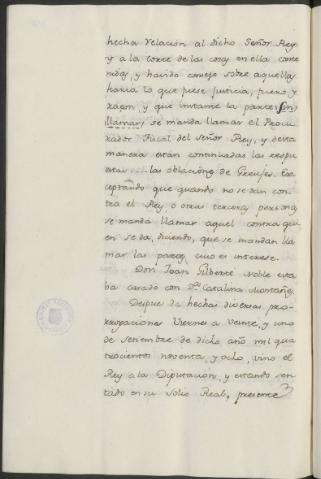 hecha relacion al dicho Señor Rey
y a la corte de las cosas en ella conte
nidas, y havido consejo sobre aquella
haria lo que fuese justicia, fuero y
razon, y que instante la parte
llamar, se manda llamar el Procu
rador Fiscal del Señor Rey, y desta
manera están continuadas las respu
estas las oblaciòns de Greujes. Exc
eptando que quando no se dan con
tra el Rey, o otras terceras personas,
se manda llamar aquel contra qui
en se da, diciendo, que se mandan lla
mar las partes cuio es interese.
Don Joan Gilbert noble esta
ba casado con Dª Catalina Montañe
Despues de hechas diversas pro
rrogaciones Viernes a veinte, y uno
de setiembre de dicho año mil qua
trocientos noventa, y ocho, vino el
Rey a la Diputacion, y estando sen
tado en su Solio Real, presente